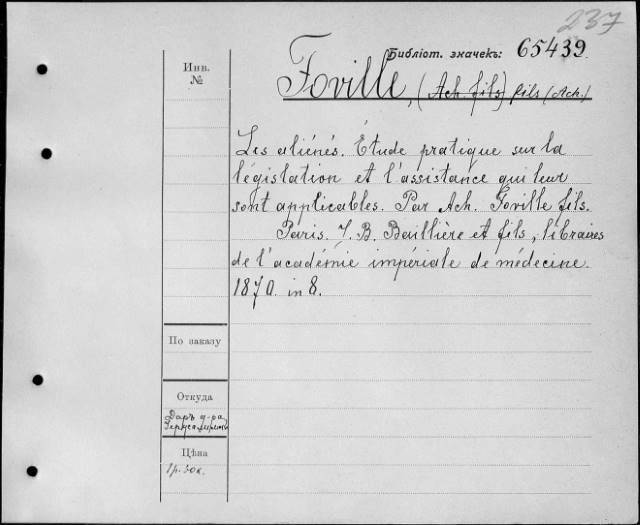 237
Библіот. значекъ: 65439
Инв.
№
Foville, (Ach. fils) fils (Ach.)
Les aliénés. Étude pratique sur la
législation et l'assistance qui leur
sont applicables. Par Ach. Foville fils.
Paris. J. B. Baillière et fils, libraires
de l'académie impériale de médecine.
1870. in 8.
По заказу
Откуда
Даръ д-ра
Цѣна
1р. 50к.